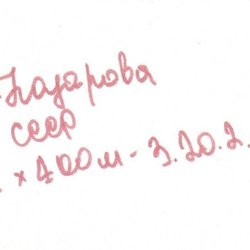 Назарова
СССР
. × 400м - 3.20.2.